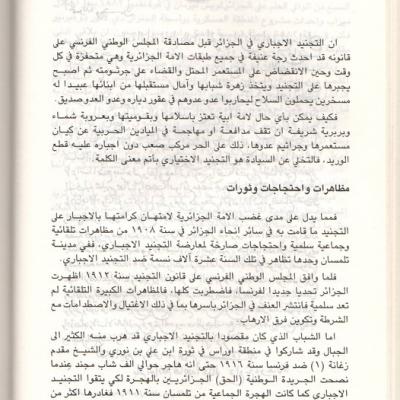 ان التجنيد الاجباري في الجزائر قبل مصادقة المجلس الوطني الفرنسي على
قانونه قد احدث رجة عنيفة في جميع طبقات الامة الجزائرية وهي متحفزة في كل
وقت وحين الانقضاض على المستعمر المحتل والقضاء على جرثومته ثم اصبح
يجبرها على التجنيد ويتخذ زهرة شبابها وآمال مستقبلها من ابنائها عبيدا له
مسخرين يحملون السلاح ليحاربوا عدو عدوهم في عقور دياره وعدو العدو صديق.
فكيف يمكن بأي حال لامة ابية تعتز باسلامها وبقوميتها وبعروبة شماء
وبربرية شريفة ان تقف مدافعة او مهاجمة في الميادين الحربية عن كيان
مستعمرها وجرائيم عدوها، ذلك على الحر مركب صعب دون اجباره عليه قطع
الوريد، فالتخلي عن السيادة هو التجنيد الاختياري بأتم معنى الكلمة.
مظاهرات واحتجاجات وثورات
فمما يدل على مدى غضب الامة الجزائرية لامتهان كرامتها بالاجبار على
التجنيد ما قامت به في سائر انحاء الجزائر في سنة ١٩٠٨ من مظاهرات تلقائية
وجماعية سلمية واحتجاجات صارخة لمعارضة التجنيد الاجباري، ففي مدينة
تلمسان وحدها تظاهر في تلك السنة عشرة آلاف نسمة ضد التجنيد الاجباري.
فلما وافق المجلس الوطني الفرنسي على قانون التجنيد سنة ١٩١٢ اظهرت
الجزائر تحديا جديدا لفرنسا، فاضطربت كلها، فالمظاهرات الكبيرة التلقائية لم
تعد سلمية فانتشر العنف في الجزائر باسرها بما في ذلك الاغتيال والاصطدامات مع
الشرطة وتكوين فرق الارهاب.
اما الشباب الذي كان مقصودا بالتجنيد الاجباري قد هرب منه الكثير الى
الجبال وقد شاركوا في منطقة اوراس في ثورة ابن علي بن نوري والشيخ مقدم
زغانة (١) ضد فرنسا سنة ١٩١٦ حتى انه هاجر حوالي الف شاب مجند عندما
نصحت الجريدة الوطنية (الحق) الجزائريين بالهجرة لكي يتقوا التجنيد
الاجباري كما كانت الهجرة الجماعية من تلمسان سنة ١٩١١ فغادرها اكثر من